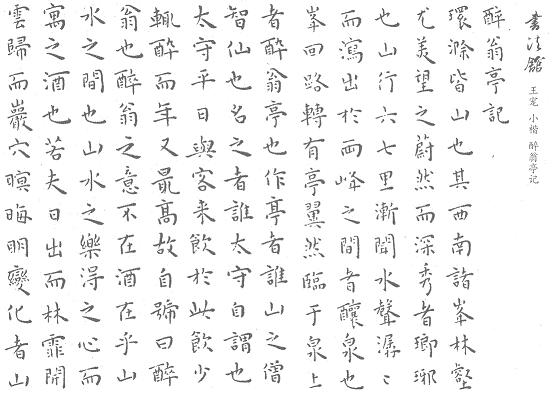 書法舘
王宠 小楷 醉翁亭记
醉翁亭記
環滁皆山也其西南諸峯林壑
尤美望之蔚然而深秀者瑯琊
也山行六七里漸聞水聲潺〻
而瀉出於两峰之間者釀泉也
峯回路轉有亭翼然臨于泉上
者醉翁亭也作亭者誰山之僧
智仙也名之者誰太守自謂也
太守平日與客来飲於此飲少
輒醉而年又最高故自號曰醉
翁也醉翁之意不在酒在乎山
水之間也山水之樂淂之心而
寓之酒也若夫日出而林霏開
雲歸而巖穴暝晦明變化者山